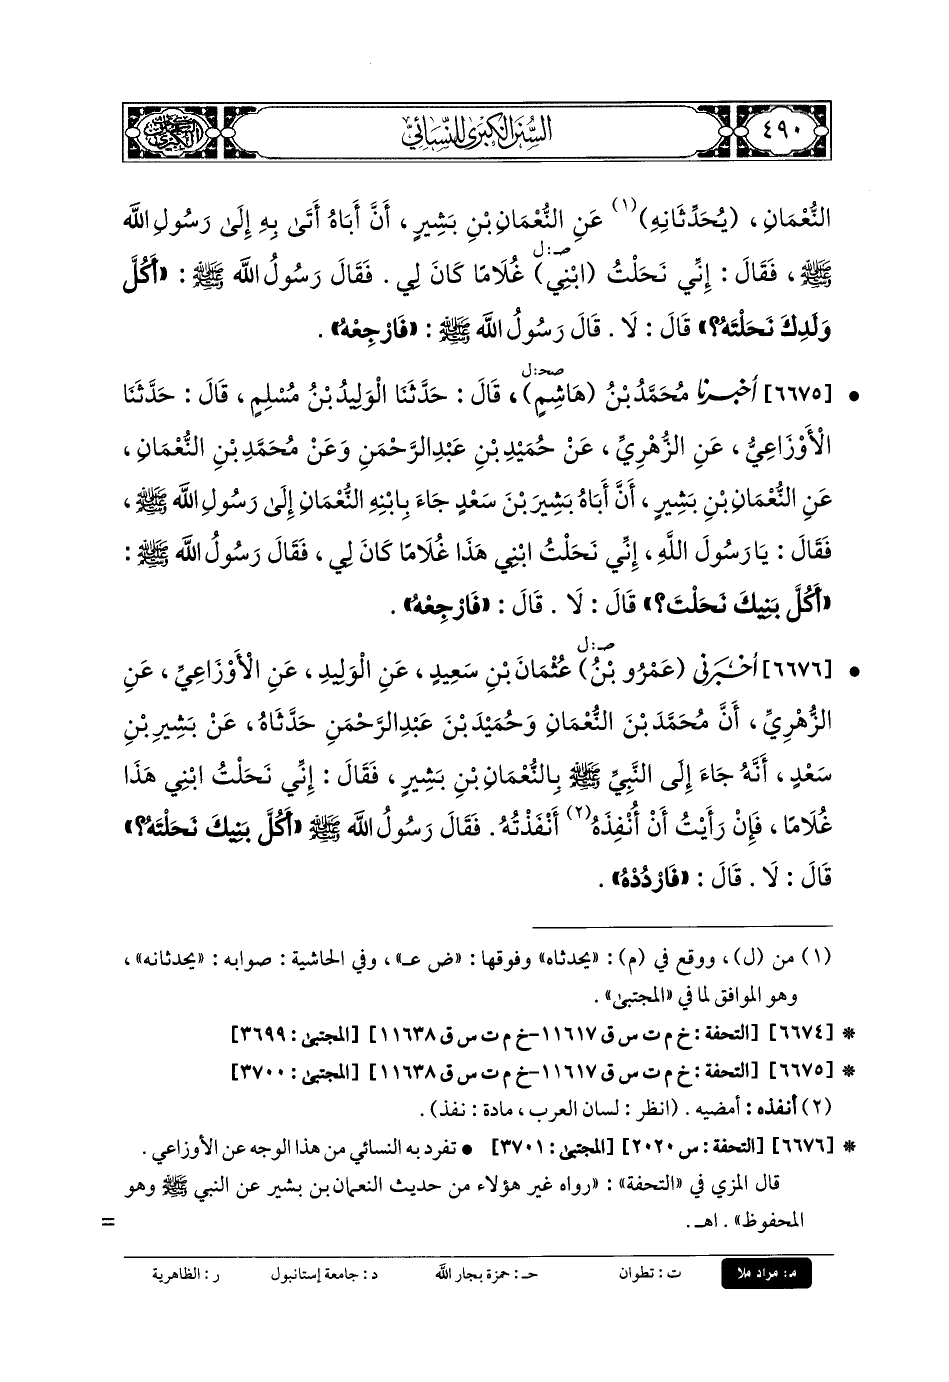 ٤٩٠
السنن الكبرى للنسائي
النُّعْمَانِ، (يُحَدِّثَانِهِ)(١) عَنِ النُّعْمَانِ بْنِ بَشِيرٍ، أَنَّ أَبَاهُ أَتَىٰ بِهِ إِلَىٰ رَسُولِ اللَّه
صـ:ل
ﷺ، فَقَالَ: إِنِّي نَحَلْتُ (ابْنِي) غُلَامًا كَانَ لِي. فَقَالَ رَسُولُ اللَّه ﷺ: «أَكُلَّ
وَلَدِكَ نَحَلْتَهُ؟» قَالَ: لَا. قَالَ رَسُولُ اللَّه ﷺ: «فَارْجِعْهُ».
صحـ:ل
• [٦٦٧٥] أخبرنا مُحَمَّدُ بْنُ (هَاشِمٍ)، قَالَ: حَدَّثَنَا الْوَلِيدُ بْنُ مُسْلِمٍ، قَالَ: حَدَّثَنَا
الْأَوْزَاعِيُّ، عَنِ الزُّهْرِيِّ، عَنْ حُمَيْدِ بْنِ عَبْدِالرَّحْمَنِ وَعَنْ مُحَمَّدِ بْنِ النُّعْمَانِ،
عَنِ النُّعْمَانِ بْنِ بَشِيرٍ، أَنَّ أَبَاهُ بَشِيرَ بْنَ سَعْدٍ جَاءَ بِابْنِهِ النُّعْمَانِ إِلَىٰ رَسُولِ اللَّه ﷺ،
فَقَالَ: يَا رَسُولَ اللَّهِ، إِنِّي نَحَلْتُ ابْنِي هَذَا غُلَامًا كَانَ لِي، فَقَالَ رَسُولُ اللَّه ﷺ:
«أَكُلَّ بَنِيكَ نَحَلْتَ؟» قَالَ: لَا. قَالَ: «فَارْجِعْهُ».
صـ:ل
• [٦٦٧٦] أَخْبَرَنِي (عَمْرُو بْنُ) عُثْمَانَ بْنِ سَعِيدٍ، عَنِ الْوَلِيدِ، عَنِ الْأَوْزَاعِيِّ، عَنِ
الزُّهْرِيِّ، أَنَّ مُحَمَّدَ بْنَ النُّعْمَانِ وَحُمَيْدَ بْنَ عَبْدِالرَّحْمَنِ حَدَّثَاهُ، عَنْ بَشِيرِ بْنِ
سَعْدٍ، أَنَّهُ جَاءَ إِلَى النَّبِيِّ ﷺ بِالنُّعْمَانِ بْنِ بَشِيرٍ، فَقَالَ: إِنِّي نَحَلْتُ ابْنِي هَذَا
غُلَامًا، فَإِنْ رَأَيْتُ أَنْ أُنْفِذَهُ(٢) أَنْفَذْتُهُ. فَقَالَ رَسُولُ اللَّه ﷺ «أَكُلَّ بَنِيكَ نَحَلْتَهُ؟»
قَالَ: لَا. قَالَ: «فَارْدُدْهُ».
(١) من (ل)، ووقع في (م): «يحدثاه» وفوقها: «ض عـ»، وفي الحاشية: صوابه: «يحدثانه»،
وهو الموافق لما في «المجتبىٰ».
* [٦٦٧٤] [التحفة: خ م ت س ق ١١٦١٧-خ م ت س ق ١١٦٣٨] [المجتبىٰ: ٣٦٩٩]
* [٦٦٧٥] [التحفة: خ م ت س ق ١١٦١٧-خ م ت س ق ١١٦٣٨] [المجتبىٰ: ٣٧٠٠]
(٢) أنفذه: أمضيه. (انظر: لسان العرب، مادة: نفذ).
* [٦٦٧٦] [التحفة: س ٢٠٢٠] [المجتبىٰ: ٣٧٠١] • تفرد به النسائي من هذا الوجه عن الأوزاعي.
قال المزي في «التحفة»: «رواه غير هؤلاء من حديث النعمان بن بشير عن النبي ﷺ وهو
المحفوظ». اهـ. =
م: مراد ملا ت: تطوان حـ: حمزة بجار اللَّه د: جامعة إستانبول ر: الظاهرية